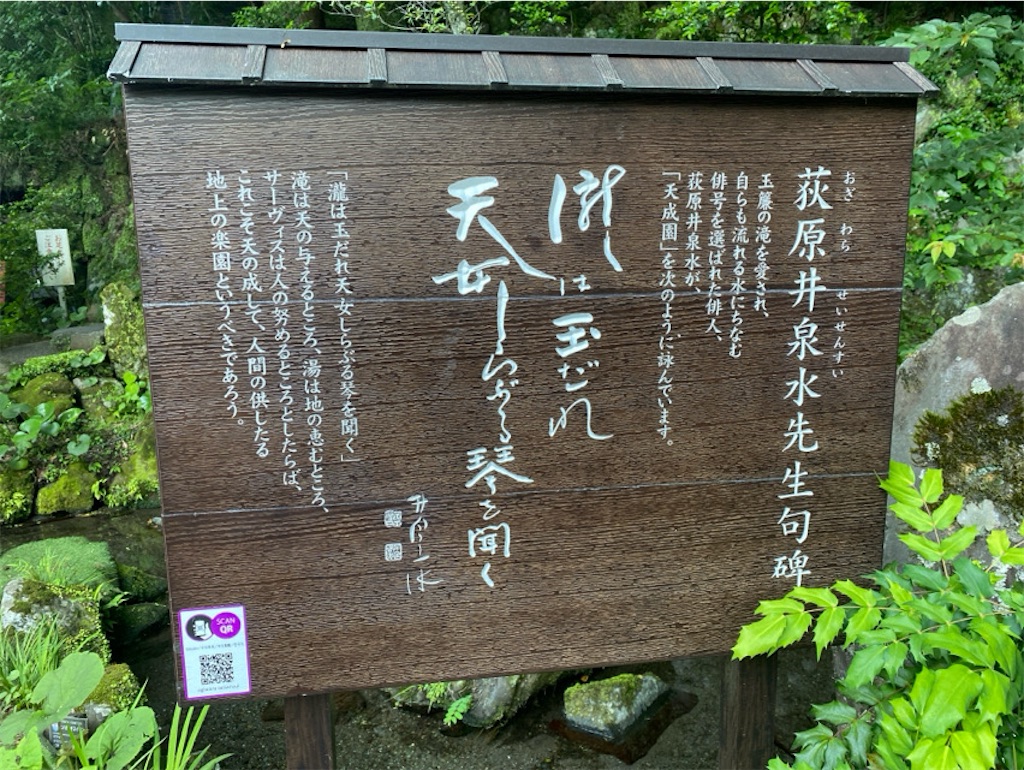 荻原井泉水先生句碑
おぎ わら せいせんすい
玉簾の滝を愛され、
自らも流れる水にちなむ
俳号を選ばれた俳人、
荻原井泉水が、
「天成園」を次のように詠んでいます。
瀧は玉だれ
天女しらぶる琴を聞く
井泉水
「瀧は玉だれ天女しらぶる琴を聞く」
滝は天の与えるところ、湯は地の恵むところ、
サーヴィスは人の努めるところとしたらば、
これこそ天の成して、人間の供したる
地上の楽園というべきであろう。
SCAN
QR